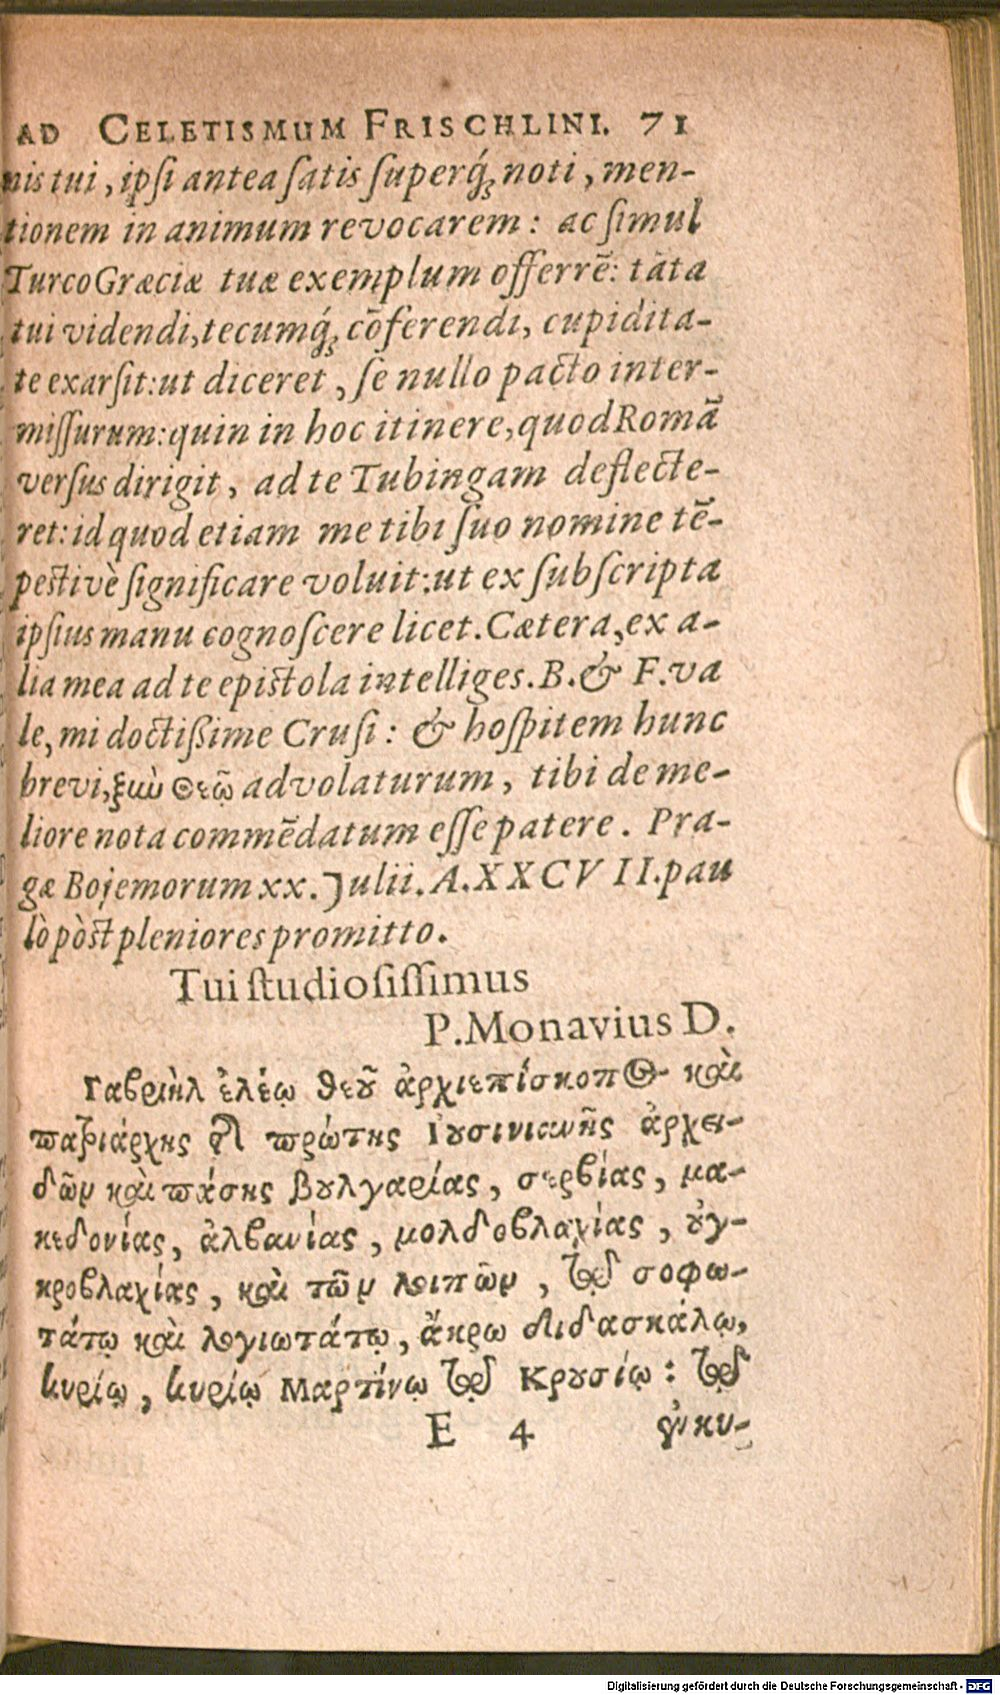 AD CELETISMUM FRISCHLINI. 71
nis tui, ipſi antea ſatis ſuperq́; noti, men-
tionem in animum revocarem: ac ſimul
TurcoGræciæ tuæ exemplum offerrē: tāta
tui videndi, tecumq́; cōferendi, cupidita-
te exarſit: ut diceret, ſe nullo pacto inter-
miſſurum: quin in hoc itinere, quod Romā
verſus dirigit, ad te Tubingam deflecte-
ret: id quod etiam me tibi ſuo nomine tē-
peſtivè ſignificare voluit: ut ex ſubſcripta
ipſius manu cognoſcere licet. Cætera, ex a-
lia mea ad te epiſtola intelliges. B. & F. va
le, mi doctiſsime Cruſi: & hoſpitem hunc
brevi, ξιὼ Θεῷ advolaturum, tibi de me-
liore nota commēdatum eſſe patere. Pra-
gæ Bojemorum xx. Julii. A. XXCVII. pau
lò pòſt pleniores promitto.
Tui ſtudioſiſſimus
P. Monavius D.
Γαβριὴλ ἐλέῳ θεοῦ ἀρχιεπίσκοπος καὶ
παξιάρχης τῆς πρώτης Ιουσινιανῆς ἀρχει-
δῶν καὶ πάσης βουλγαρίας, σερβίας, μα-
κεδονίας, ἀλβανίας, μολδοβλαχίας, οὐγ-
κροβλαχίας, καὶ τῶν λοιπῶν, τῷ σοφω-
τάτῳ καὶ λογιωτάτῳ, ἄκρω διδασκάλῳ,
κυρίῳ, κυρίῳ Μαρτίνῳ τῷ Κρουσίῳ: τῷ
E 4 ἐγκυ-
Digitalisierung gefördert durch die Deutsche Forschungsgemeinschaft - DFG